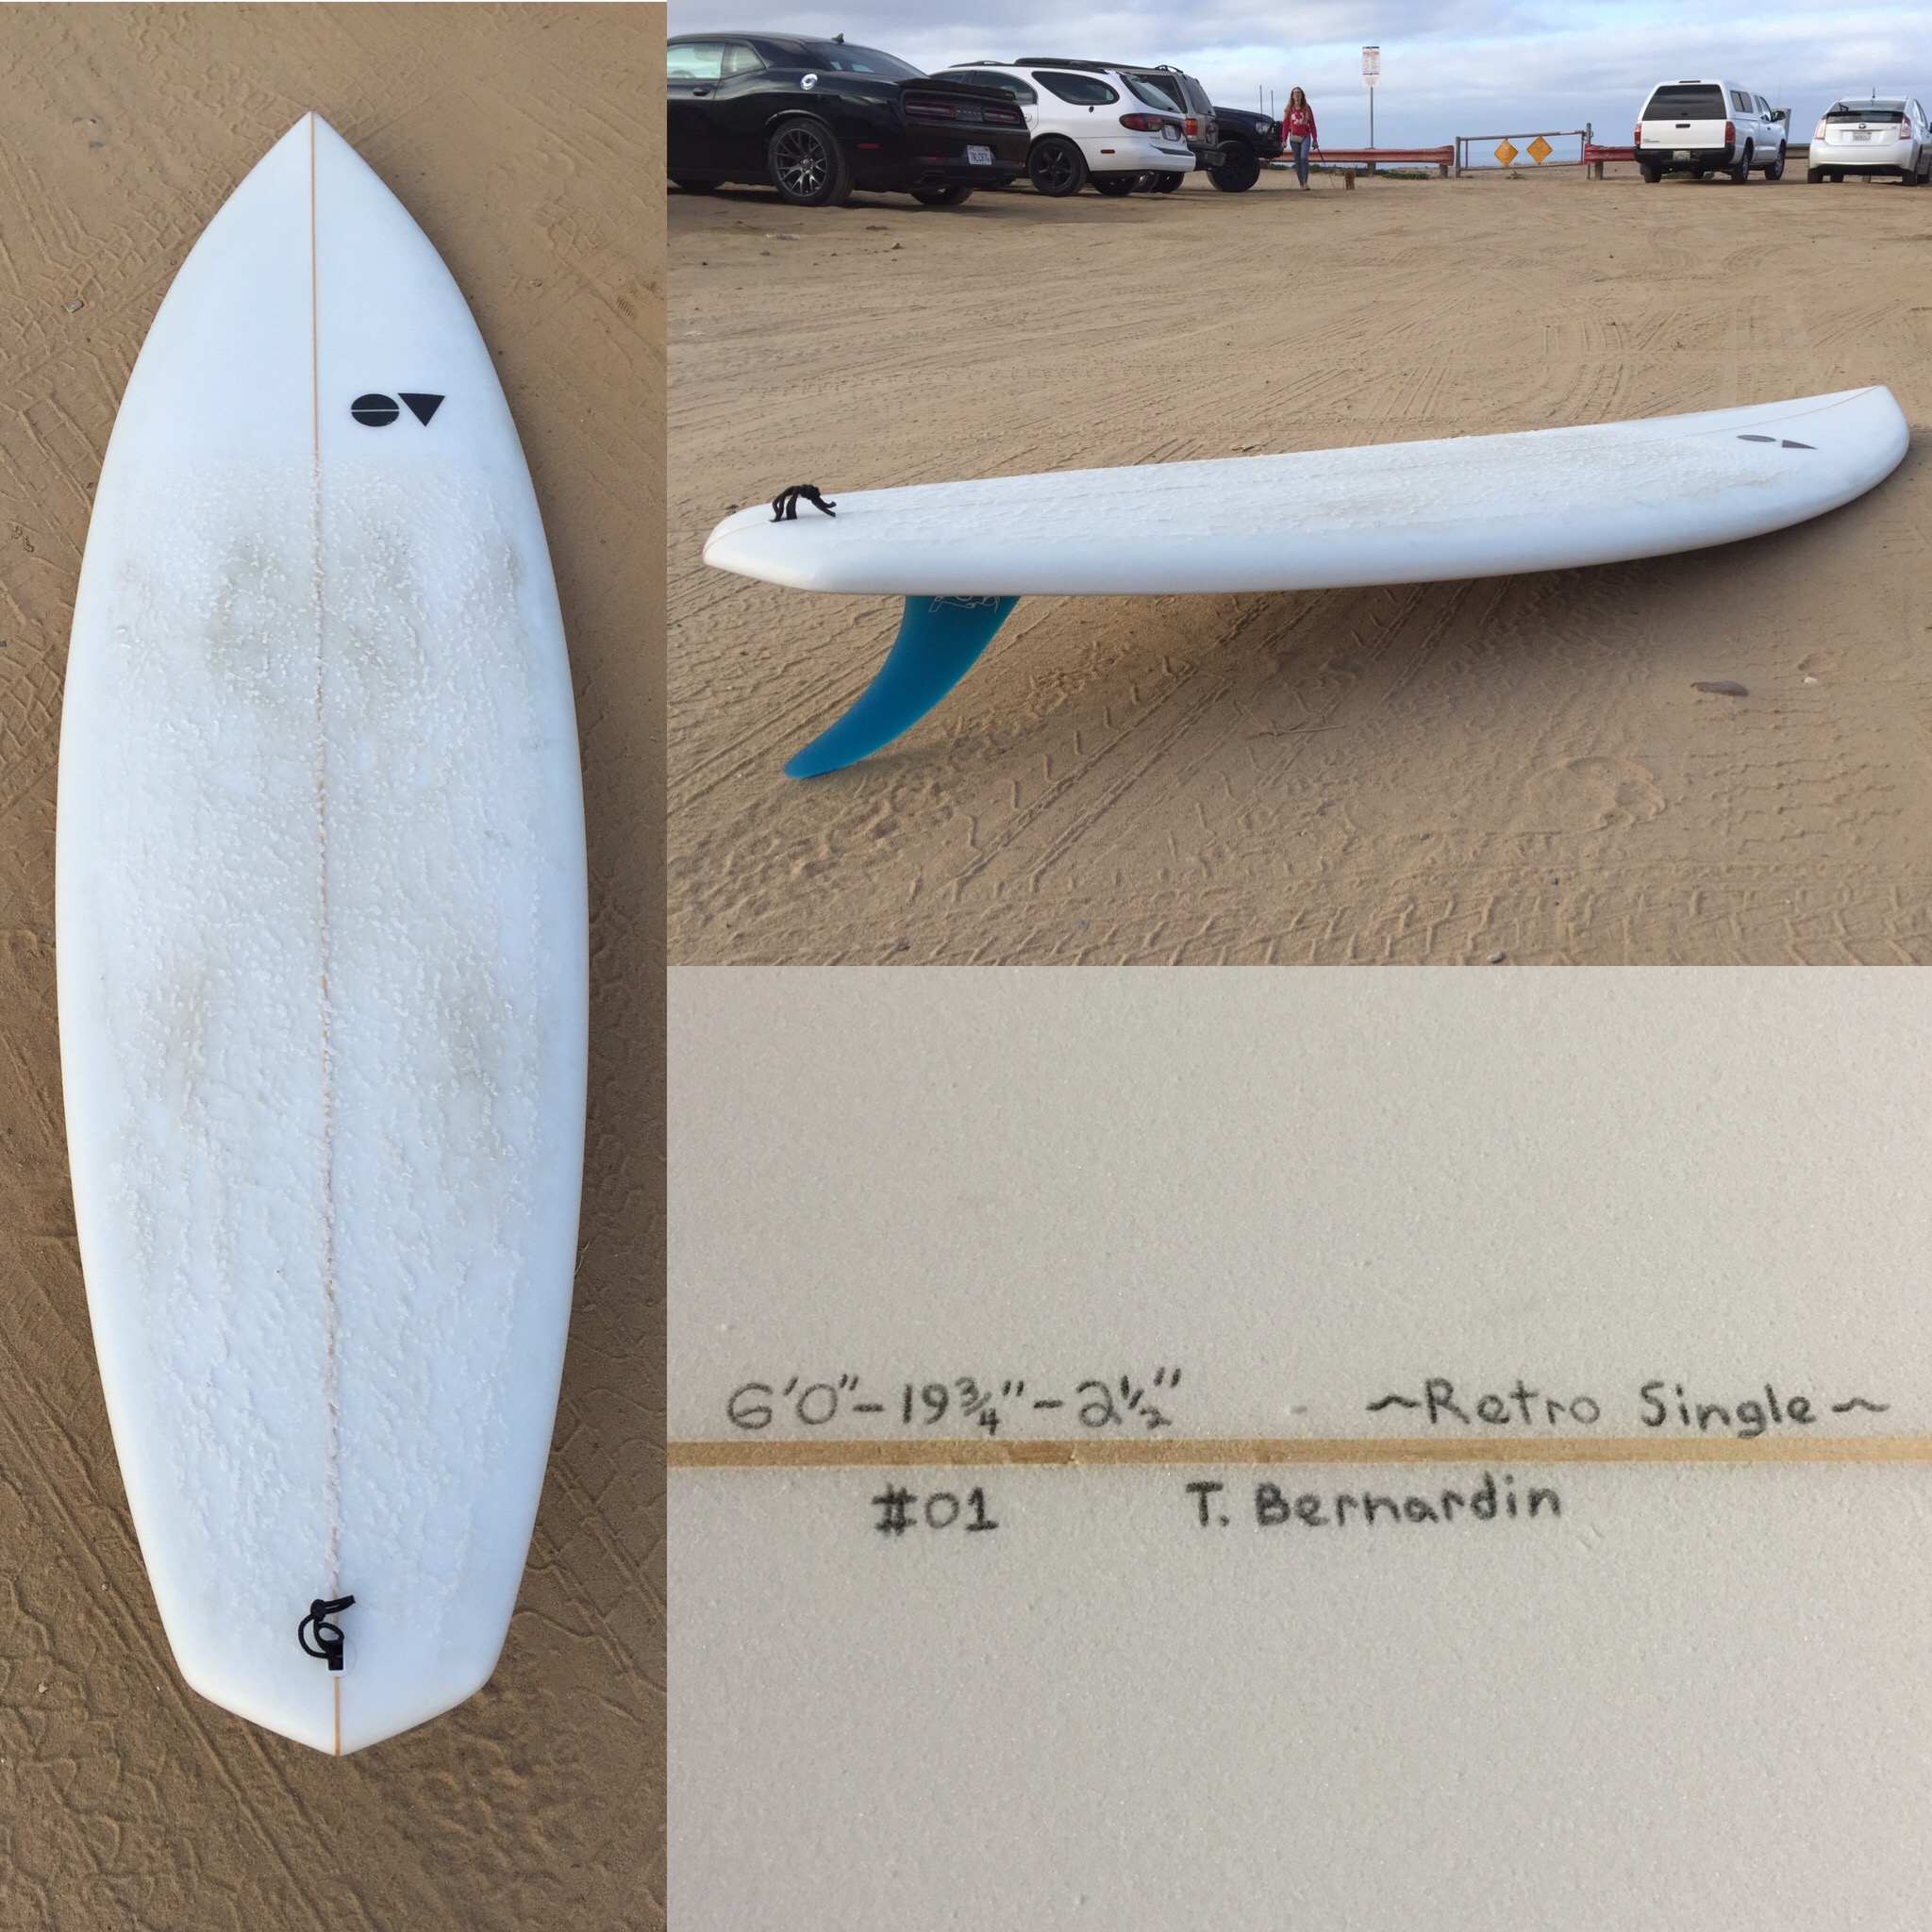 6'0"-19 3/4"-2 1/2" ~Retro Single~
#01 T. Bernardin